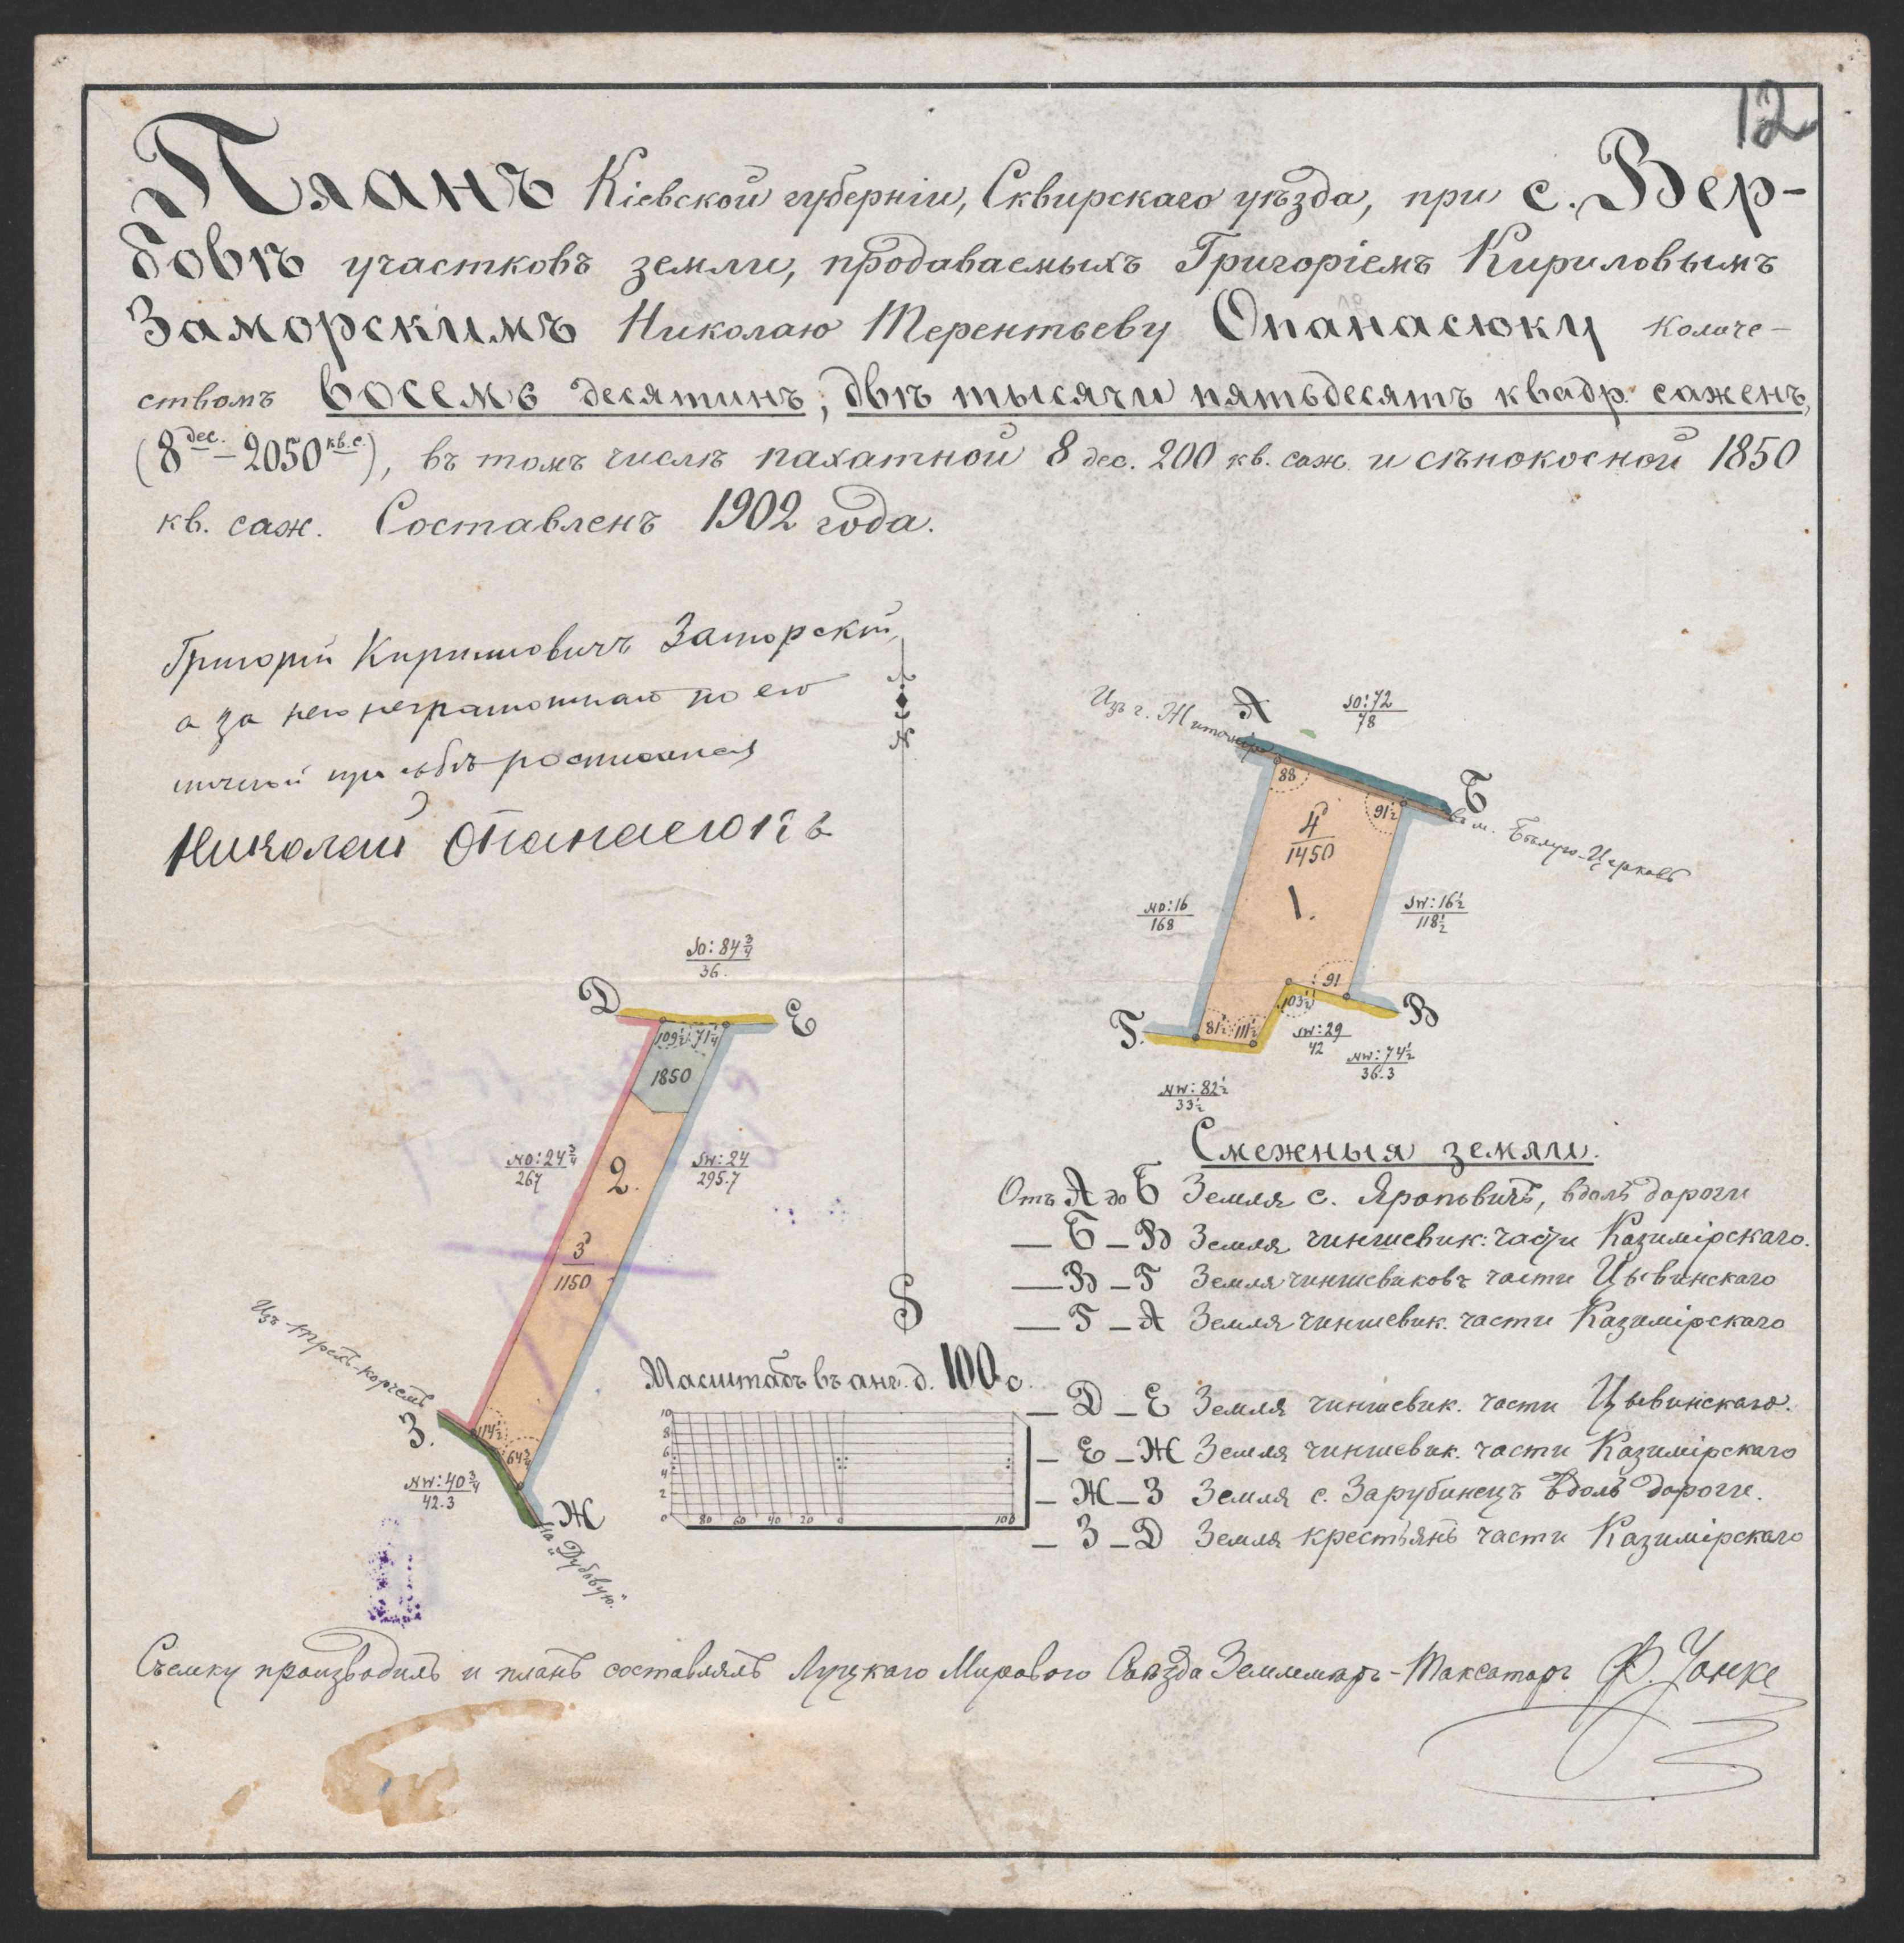 12
Планъ Кіевской губерніи, Сквирскаго уѣзда, при с. Вер-
бовѣ участковъ земли, продаваемыхъ Григоріемъ Кириловымъ
Заморскимъ Николаю Терентьеву Опанасюку количе-
ствомъ восемь десятинъ, двѣ тысячи пятьдесятъ квадр. саженъ,
(8 дес. – 2050 кв. с.), въ томъ числѣ пахатной 8 дес. 200 кв. саж. и сѣнокосной 1850
кв. саж. Составленъ 1902 года.
Григорій Кириловичъ Заморскій,
а за него неграмотнаго по его
личной прозьбѣ росписался
Николай Опанасюкъ
N
S
Изъ г. Житомира
А
SO: 72
78
Б
въ м. Бѣлую-Церковь
88
91½
4
1450
1.
NO: 16
168
SW: 16½
118½
91
103½
81½
111½
Г.
В
SW: 29
42
NW: 74½
36.3
NW: 82½
33½
SO: 84¾
36.
Д
Е
109½
71¼
1850
NO: 24¾
267
2.
SW: 24
295.7
3
1150
Изъ
З.
114½
64¾
NW: 40¾
42.3
Ж
на „Дубовую“
Смежныя земли.
Отъ А до Б Земля с. Яроповичъ, вдоль дороги
— Б – В Земля чиншевик: части Казимірскаго.
— В – Г Земля чиншевиковъ части Цывинскаго
— Г – А Земля чиншевик. части Казимірскаго
— Д – Е Земля чиншевик. части Цывинскаго.
— Е – Ж Земля чиншевик. части Казимірскаго
— Ж – З Земля с. Зарубинецъ вдоль дороги.
— З – Д Земля крестьянъ части Казимірскаго
Масштабъ въ анг. д. 100 с.
10
8
6
4
2
0
80 60 40 20 0 100
Съемку производилъ и планъ составлялъ Луцкаго Мирового Съѣзда Землемѣръ-Таксаторъ Ф.